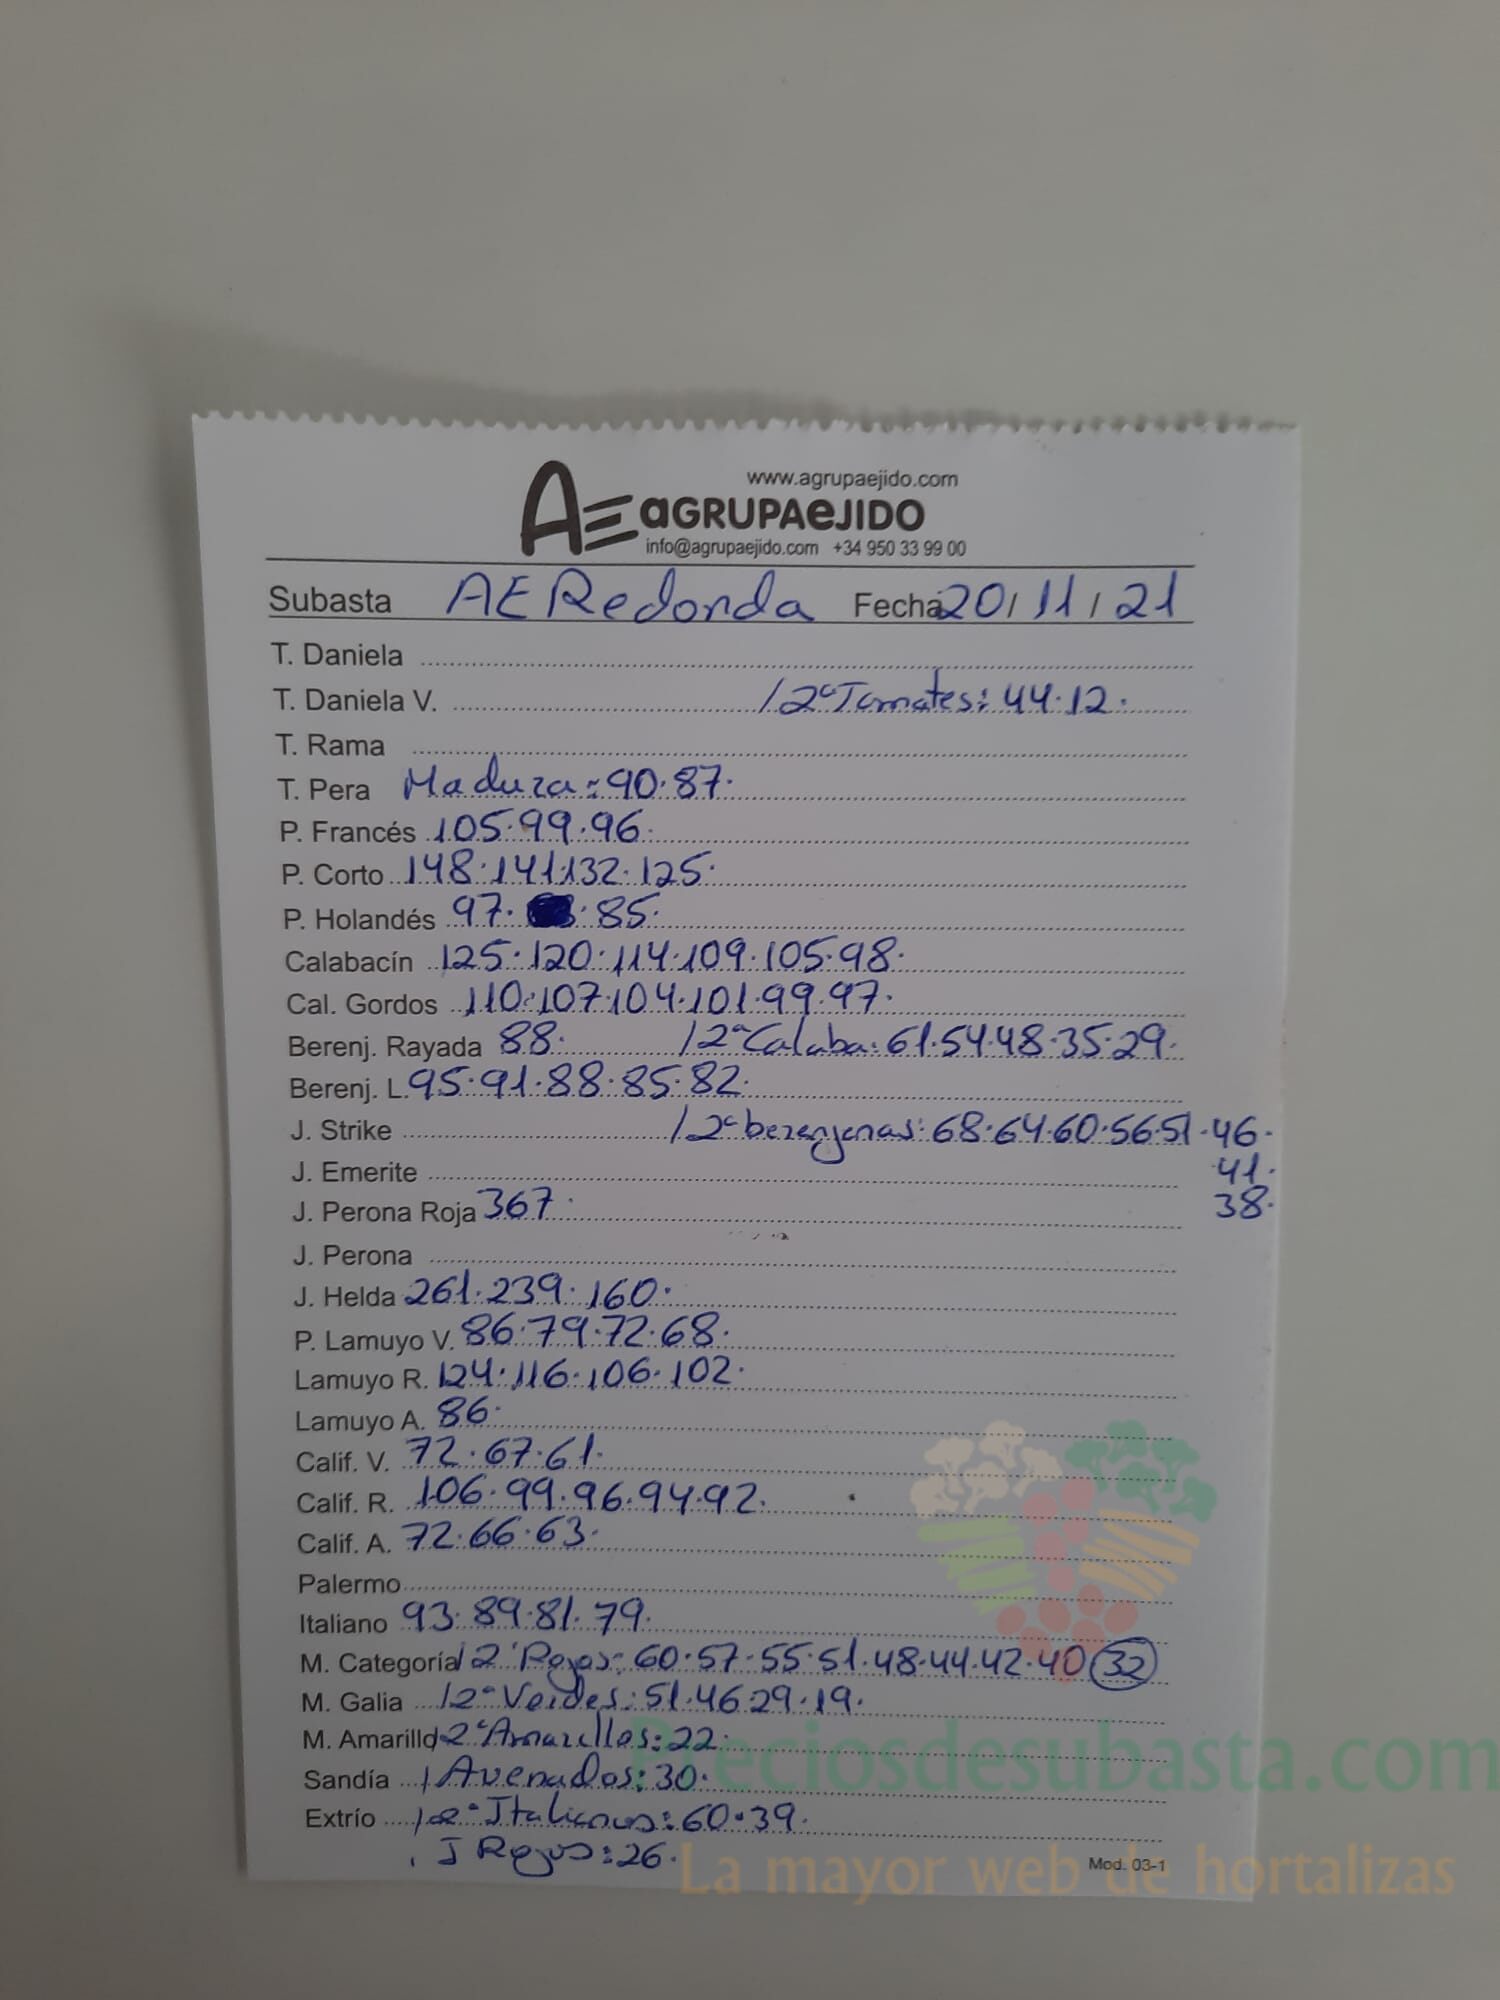 www.agrupaejido.com
AE aGRUPAeJIDO
info@agrupaejido.com +34 950 33 99 00
Subasta AE Redonda Fecha 20/11/21
T. Daniela
T. Daniela V. /2ªTomates: 44.12.
T. Rama
T. Pera Madura: 90.87.
P. Francés 105.99.96.
P. Corto 148.141.132.125.
P. Holandés 97. .85.
Calabacín 125.120.114.109.105.98.
Cal. Gordos 110.107.104.101.99.97.
Berenj. Rayada 88. /2ªCalaba: 61.54.48.35.29.
Berenj. L. 95.91.88.85.82.
J. Strike /2ªberenjenas: 68.64.60.56.51.46.
J. Emerite 41.
J. Perona Roja 367. 38.
J. Perona
J. Helda 261.239.160.
P. Lamuyo V. 86.79.72.68.
Lamuyo R. 124.116.106.102.
Lamuyo A. 86.
Calif. V. 72.67.61.
Calif. R. 106.99.96.94.92.
Calif. A. 72.66.63.
Palermo
Italiano 93.89.81.79.
M. Categoría /2ªRojos: 60.57.55.51.48.44.42.40 32
M. Galia /2ªVerdes: 51.46.29.19.
M. Amarillo 2ªAmarillos: 22.
Sandía / Avenados: 30.
Extrío /2ªItalianos: 60.39.
J Rojos: 26.
Mod. 03-1
Preciosdesubasta.com
La mayor web de hortalizas